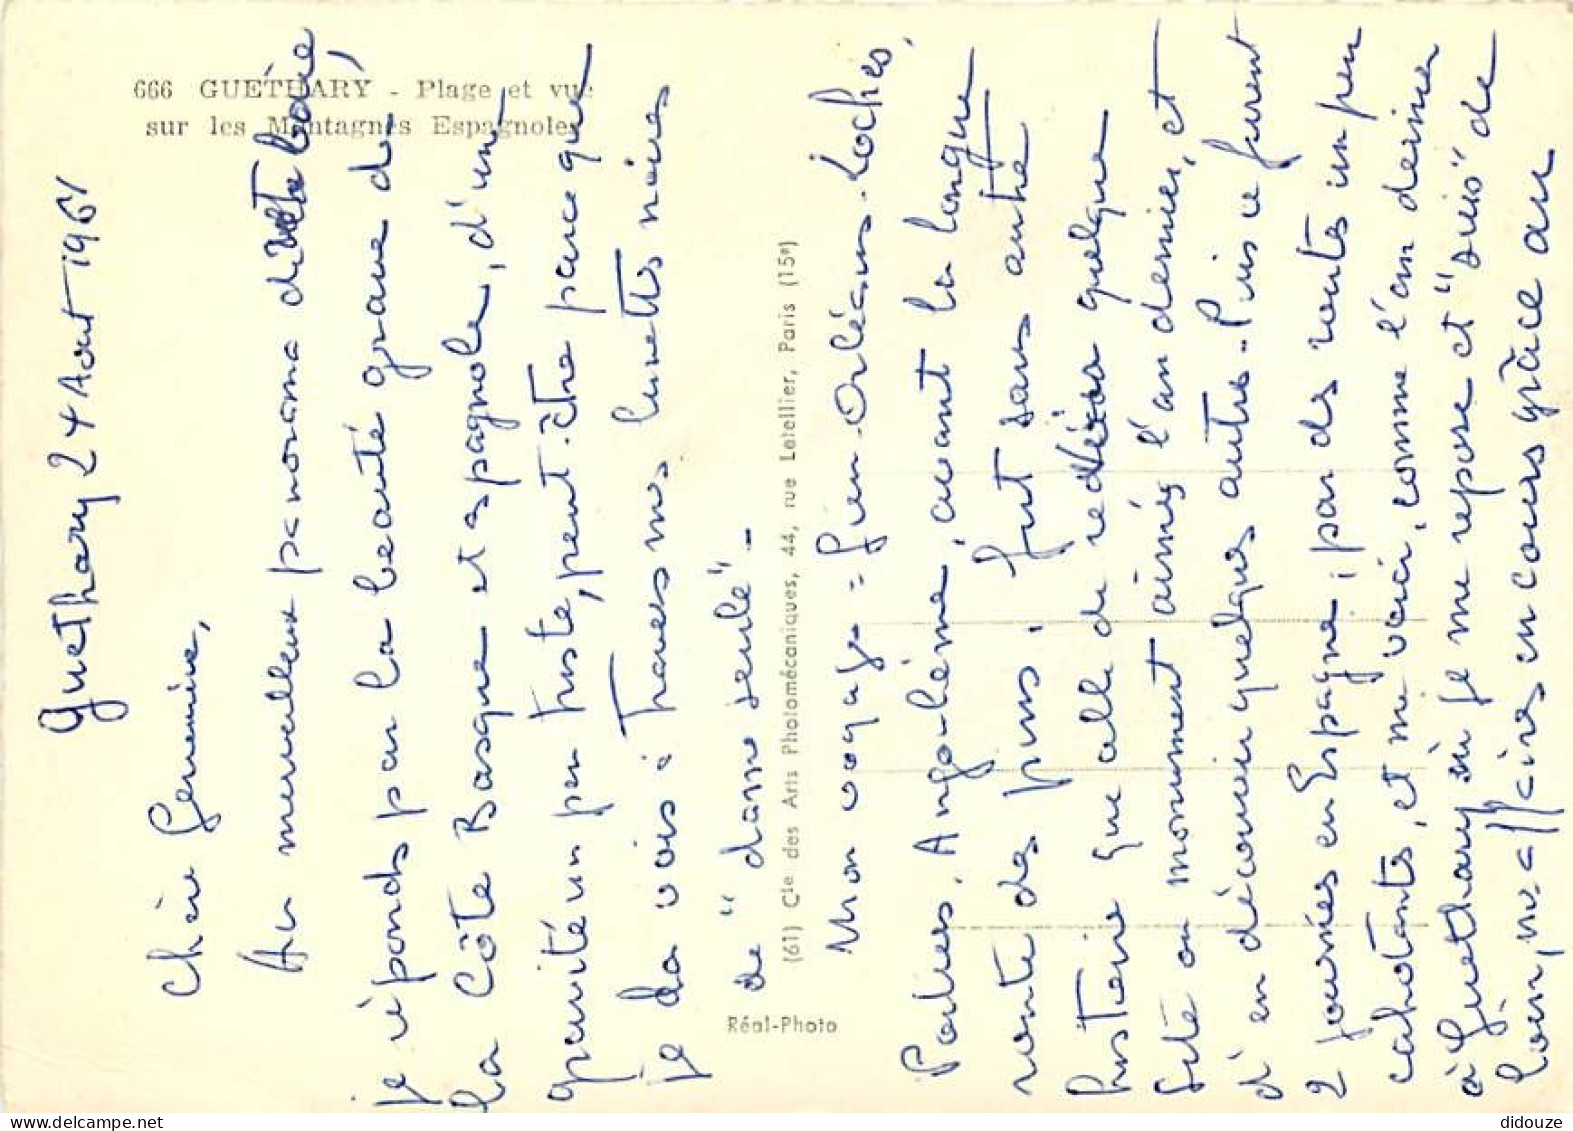 666 GUETHARY - Plage et vue
sur les Montagnes Espagnoles
Guethary 24 Août 196
Chère Geneviève,
Au merveilleux panorama de
je réponds par la beauté grave de
la Côte Basque et espagnole, d'une
gravité un peu triste, peut-être parce que
je la vois à travers mes lunettes noires
de "dame seule" -
(61) Cie des Arts Photomécaniques, 44, rue Letellier, Paris (15e)
Réal-Photo
Mon voyage = Gien-Orléans-Loches,
Poitiers, Angoulême, avant la longue
route des pins, fut sans autre
histoire que celle de redire quelque
site ou monument aimés l'an dernier, et
d'en découvrir quelques autres - Puis ce furent
2 journées en Espagne, par des routes un peu
cahotantes, et me voici, comme l'an dernier
à Guethary où je me repose et "suis" de
loin, mes affaires en cours grâce au
didouze